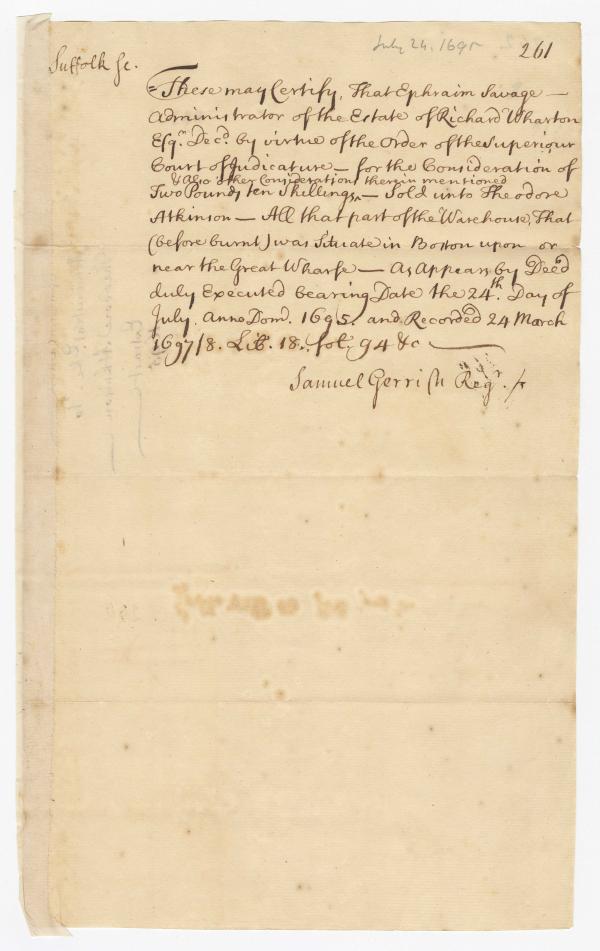 July 24, 1695
261
Suffolk Sc.
These may Certify, That Ephraim Savage —
Administrator of the Estate of Richard Wharton
Esqr. Decd. by virtue of the Order of the Superiour
Court of Judicature — for the Consideration of
& Also other Considerations therein mentioned
Two Pounds ten Shillings ^ — Sold unto Theodore
Atkinson — All that part of the Warehouse, That
(before burnt) was Situate in Boston upon or
near the Great Wharfe — As Appears by Deed
duly Executed bearing Date the 24th. Day of
July. Anno Dom. 1695. and Recorded 24 March
1697/8. Lib. 18. fol. 94 &c —
Samuel Gerrish Regr.